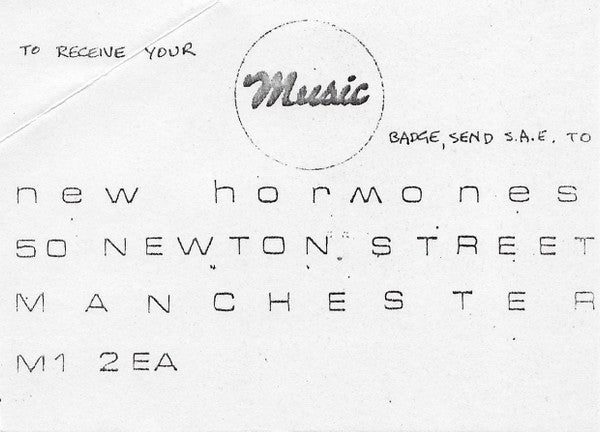 TO RECEIVE YOUR
Music
BADGE, SEND S.A.E. TO
new hormones
50 NEWTON STREET
MANCHESTER
M1 2EA